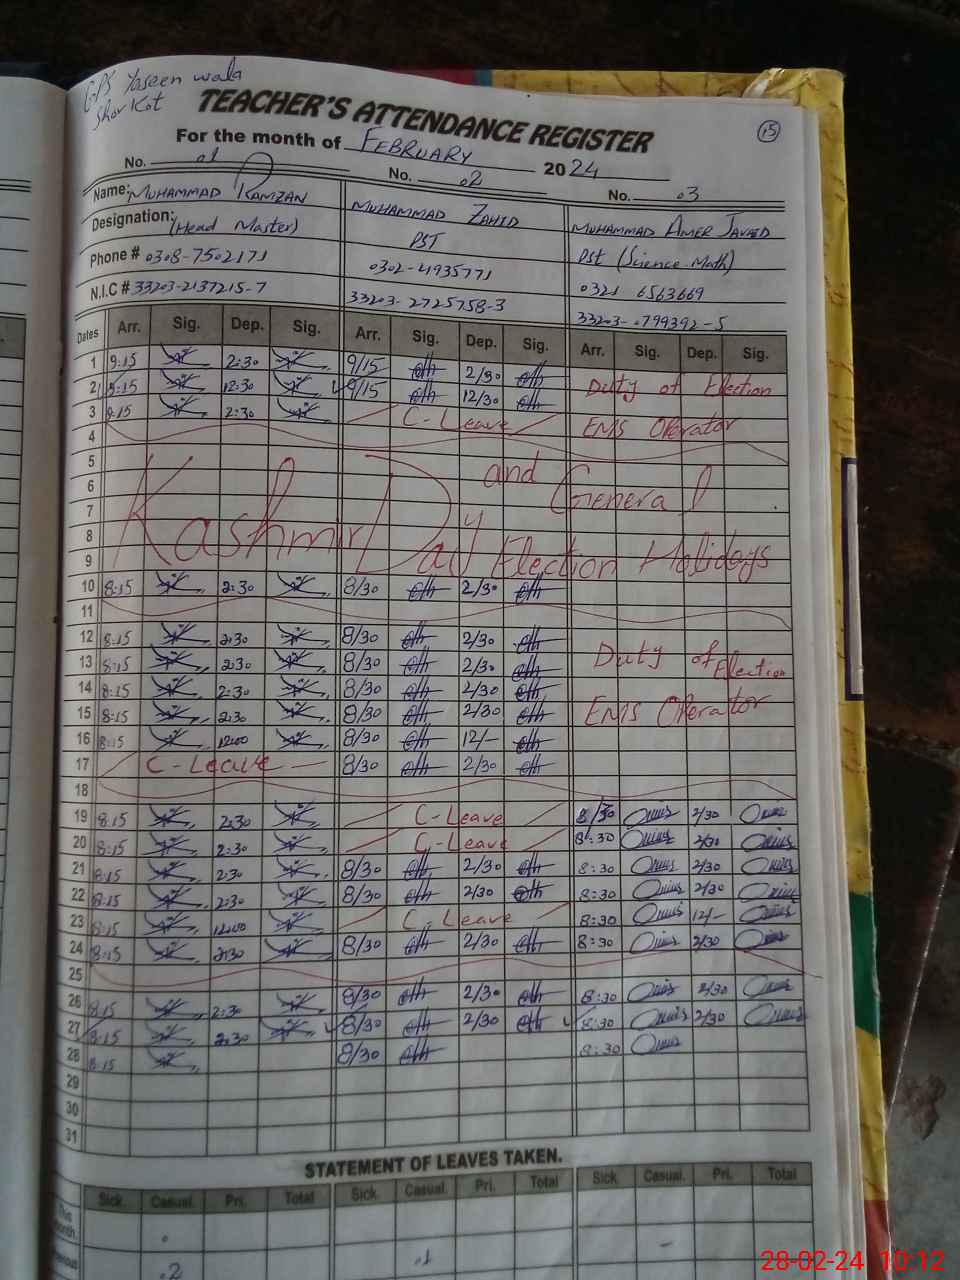 GPS Yaseen wala
Shor Kot
TEACHER'S ATTENDANCE REGISTER
15
For the month of FEBRUARY 2024
No. 01 No. 02 No. 03
Name: MUHAMMAD RAMZAN MUHAMMAD ZAHID MUHAMMAD AMER JAVAID
Designation: (Head Master) PST PST (Science Math)
Phone # 0308-7502171 0302-4935771 0321 6563669
N.I.C # 33203-2137215-7 33203-2725758-3 33203-0799392-5
Dates Arr. Sig. Dep. Sig. Arr. Sig. Dep. Sig. Arr. Sig. Dep. Sig.
1 9:15 2:30 9/15 2/30
2 9:15 12:30 9/15 12/30 Duty of Election
3 9:15 2:30 C-Leave EMS Operator
4
5 and
6 General
7
8 Kashmir Day
9 Election Holidays
10 8:15 2:30 8/30 2/30
11
12 8:15 2:30 8/30 2/30
13 8:15 2:30 8/30 2/30 Duty of Election
14 8:15 2:30 8/30 2/30
15 8:15 2:30 8/30 2/30 EMS Operator
16 8:15 12:00 8/30 12/-
17 C-Leave 8/30 2/30
18
19 8:15 2:30 C-Leave 8/30 2/30
20 8:15 2:30 C-Leave 8:30 2/30
21 8:15 2:30 8/30 2/30 8:30 2/30
22 8:15 2:30 8/30 2/30 8:30 2/30
23 8:15 12:00 C-Leave 8:30 12/-
24 8:15 2:30 8/30 2/30 8:30 2/30
25
26 8:15 2:30 8/30 2/30 8:30 2/30
27 8:15 2:30 8/30 2/30 8:30 2/30
28 8:15 8/30 8:30
29
30
31
STATEMENT OF LEAVES TAKEN.
Sick. Casual. Pri. Total Sick. Casual. Pri. Total Sick. Casual. Pri. Total
This month.
.2 .1 -
28-02-24 10:12